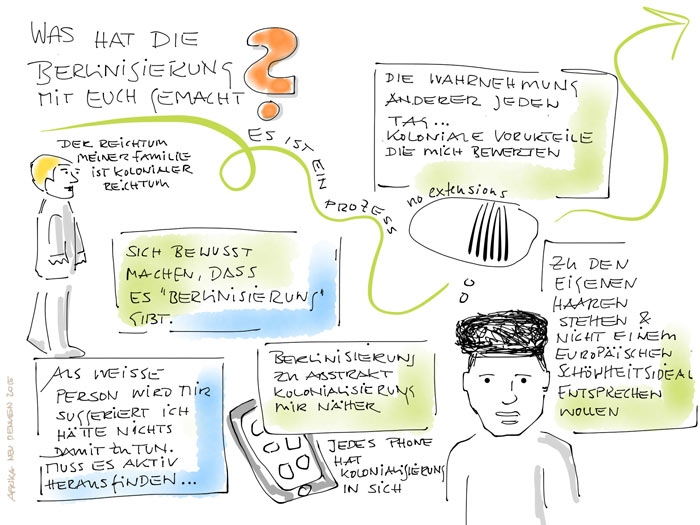 WAS HAT DIE
BERLINISIERUNG
MIT EUCH GEMACHT ?
ES IST EIN PROZESS
DIE WAHRNEHMUNG
ANDERER JEDEN
TAG...
KOLONIALE VORURTEILE
DIE MICH BEWERTEN
DER REICHTUM
MEINER FAMILIE
IST KOLONIALER
REICHTUM
no extensions
SICH BEWUSST
MACHEN, DASS
ES "BERLINISIERUNG"
GIBT.
ZU DEN
EIGENEN
HAAREN
STEHEN &
NICHT EINEM
EUROPÄISCHEN
SCHÖNHEITSIDEAL
ENTSPRECHEN
WOLLEN
ALS WEISSE
PERSON WIRD MIR
SUGGERIERT ICH
HÄTTE NICHTS
DAMIT ZU TUN.
MUSS ES AKTIV
HERAUSFINDEN...
BERLINISIERUNG
ZU ABSTRAKT
KOLONIALISIERUNG
MIR NÄHER
JEDES PHONE
HAT
KOLONIALISIERUNG
IN SICH
AFRIKA NEU DENKEN 2015